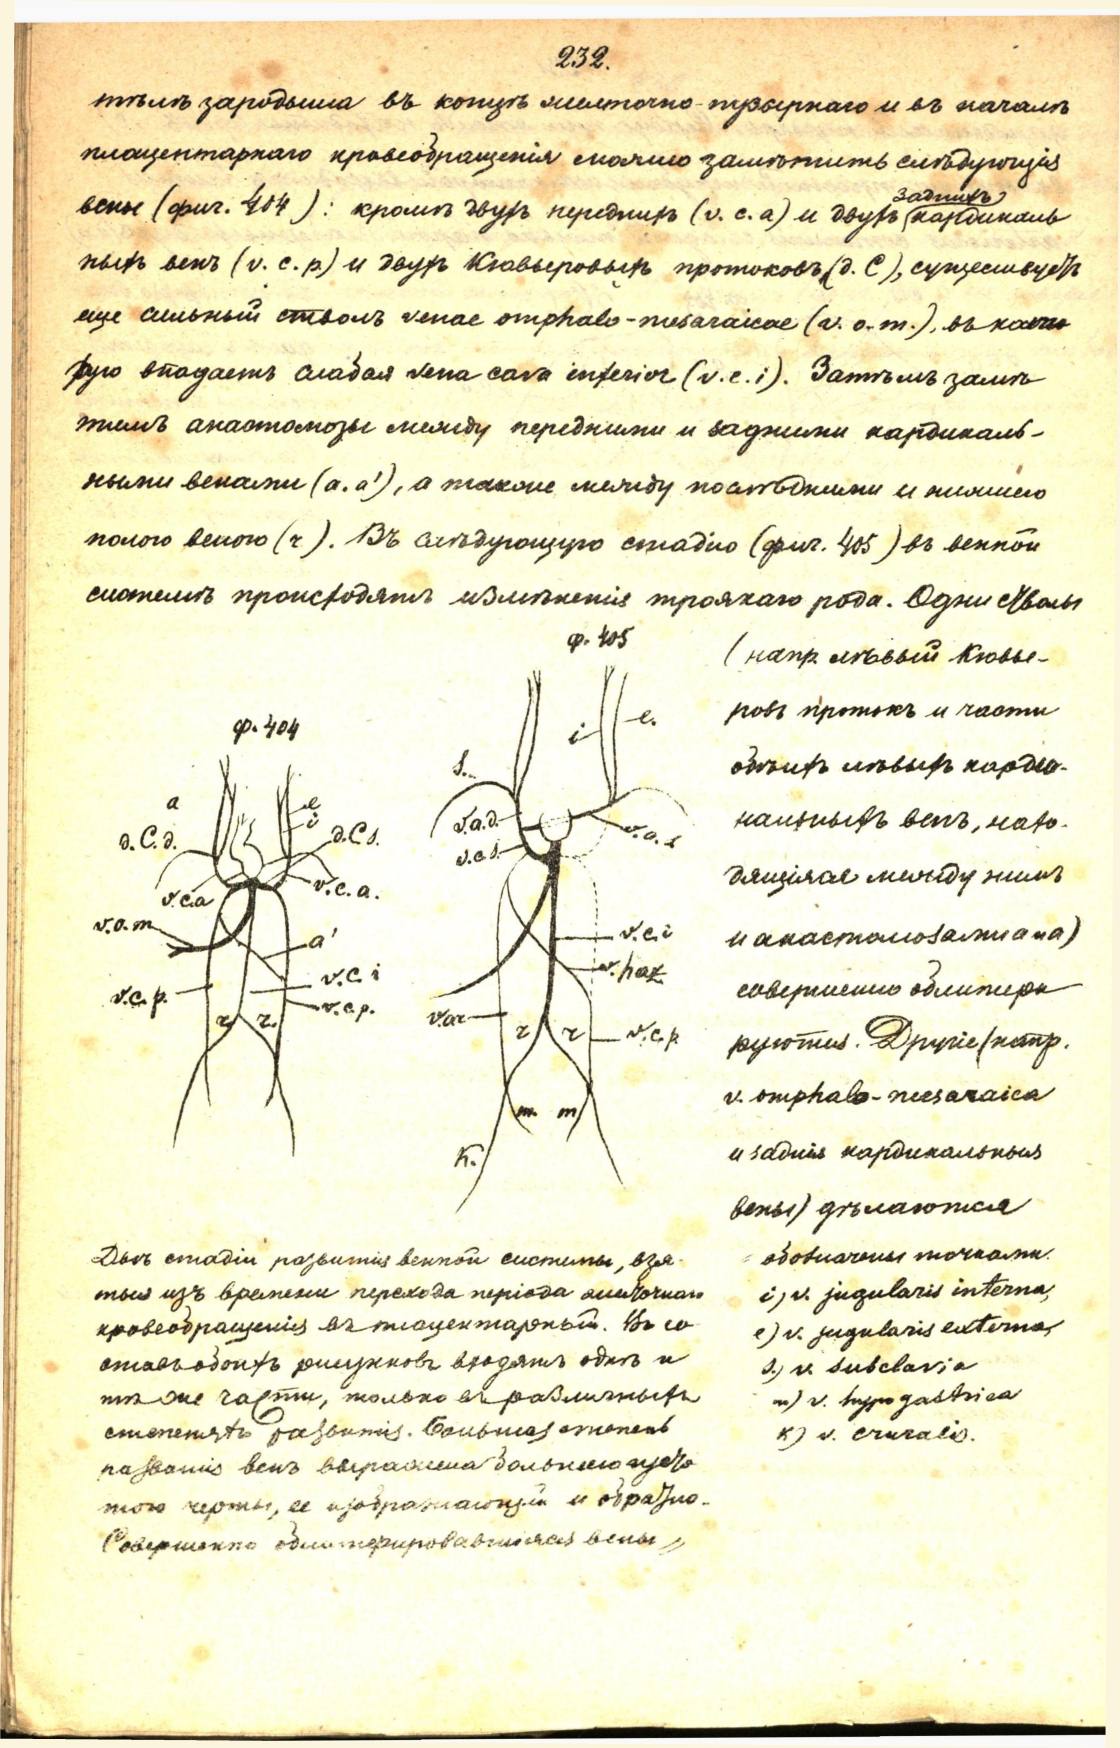 232.
тѣлѣ зародыша въ концѣ желточно-пузырнаго и въ началѣ
плацентарнаго кровеобращенія можно замѣтить слѣдующія
задних
вены (фиг. 404): кромѣ двухъ переднихъ (v. c. a) и двухъ кардиналь
ныхъ венъ (v. c. p.) и двухъ Кювьеровыхъ протоковъ (d. C), существуетъ
еще сильный стволъ venae omphalo-mesaraicae (v. o. m.), въ кото
рую впадаетъ слабая vena cava inferior (v. c. i). Затѣмъ замѣ
тимъ анастомозы между передними и задними кардиналь-
ными венами (a. a'), а также между послѣдними и нижнею
полою веною (r). Въ слѣдующую стадію (фиг. 405) въ венной
системѣ происходятъ измѣненія троякаго рода. Одни стволы
(напр. лѣвый Кювье-
ровъ протокъ и части
обѣихъ лѣвыхъ карди-
нальныхъ венъ, нахо-
дящіяся между нимъ
и анастомозами a и a)
совершенно облитери
руются. Другіе (напр.
v. omphalo-mesaraica
и заднія кардинальныя
вены) дѣлаются
ф. 404
a
d. C. d.
e
i
d. C s.
v. c. a
v. c. a.
v. o. m
a'
v. c. i
v. c. p.
v. c. p.
r
r.
ф. 405
i
e.
s.
v. a. d.
v. a. s
v. c. s.
v. c. i
v. haz.
v. az
r
r
v. c. p.
m.
m
K.
Двѣ стадіи развитія венной системы, взя-
тыя изъ времени перехода періода желточнаго
кровеобращенія въ плацентарный. Въ со
ставъ обоихъ рисунковъ входятъ однѣ и
тѣ же части, только въ различныхъ
степеняхъ развитія. Большая степень
развитія венъ выражена большею густо
тою черты, ее изображающей и обратно.
Совершенно облитерировавшіяся вены
обозначены точками.
i) v. jugularis interna,
e) v. jugularis externa,
s.) v. subclavia
m) v. hypogastrica
K) v. cruralis.